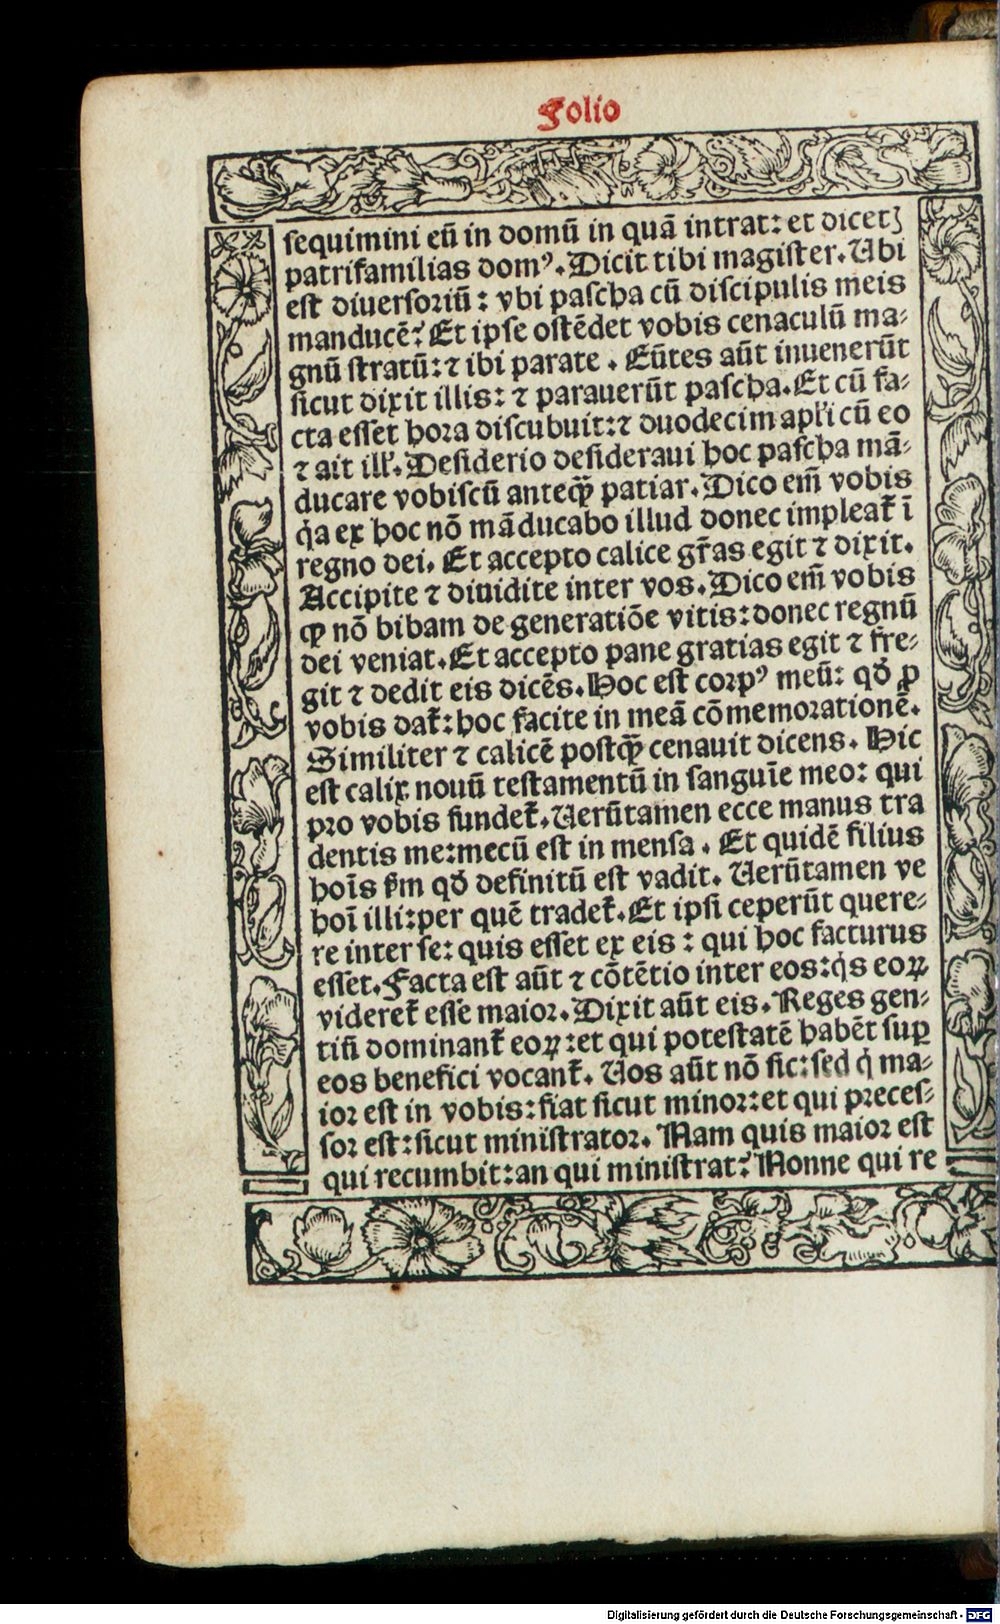 Folio
sequimini eū in domū in quā intrat: et dicetꝭ
patrifamilias domꝰ. Dicit tibi magister. Ubi
est diuersoriū: vbi pascha cū discipulis meis
manducē? Et ipse ostēdet vobis cenaculū ma-
gnū stratū: ⁊ ibi parate. Eūtes aūt inuenerūt
sicut dixit illis: ⁊ parauerūt pascha. Et cū fa-
cta esset hora discubuit: ⁊ duodecim apl'i cū eo
⁊ ait ill'. Desiderio desideraui hoc pascha mā-
ducare vobiscū anteqꝫ̃ patiar. Dico em̄ vobis
q̇a ex hoc nō māducabo illud donec impleat᷑ ī
regno dei. Et accepto calice gr̄as egit ⁊ dixit.
Accipite ⁊ diuidite inter vos. Dico em̄ vobis
ꝙ nō bibam de generatiōe vitis: donec regnū
dei veniat. Et accepto pane gratias egit ⁊ fre-
git ⁊ dedit eis dicēs. Hoc est corpꝰ meū: qd̄ ꝓ
vobis dat᷑: hoc facite in meā cōmemorationē.
Similiter ⁊ calicē postꝙ̄ cenauit dicens. Hic
est calix nouū testamentū in sanguīe meo: qui
pro vobis fundet᷑. Uerūtamen ecce manus tra
dentis me: mecū est in mensa. Et quidē filius
hoīs ẜm qd̄ definitū est vadit. Uerūtamen ve
hoī illi: per quē tradet᷑. Et ipsi ceperūt quere-
re inter se: quis esset ex eis: qui hoc facturus
esset. Facta est aūt ⁊ cōtētio inter eos: q̇s eoꝝ
videret᷑ esse maior. Dixit aūt eis. Reges gen-
tiū dominant᷑ eoꝝ: et qui potestatē habēt suꝑ
eos benefici vocant᷑. Uos aūt nō sic: sed q̇ ma-
ior est in vobis: fiat sicut minor: et qui preces-
sor est: sicut ministrator. Nam quis maior est
qui recumbit: an qui ministrat? Nonne qui re
Digitalisierung gefördert durch die Deutsche Forschungsgemeinschaft - DFG